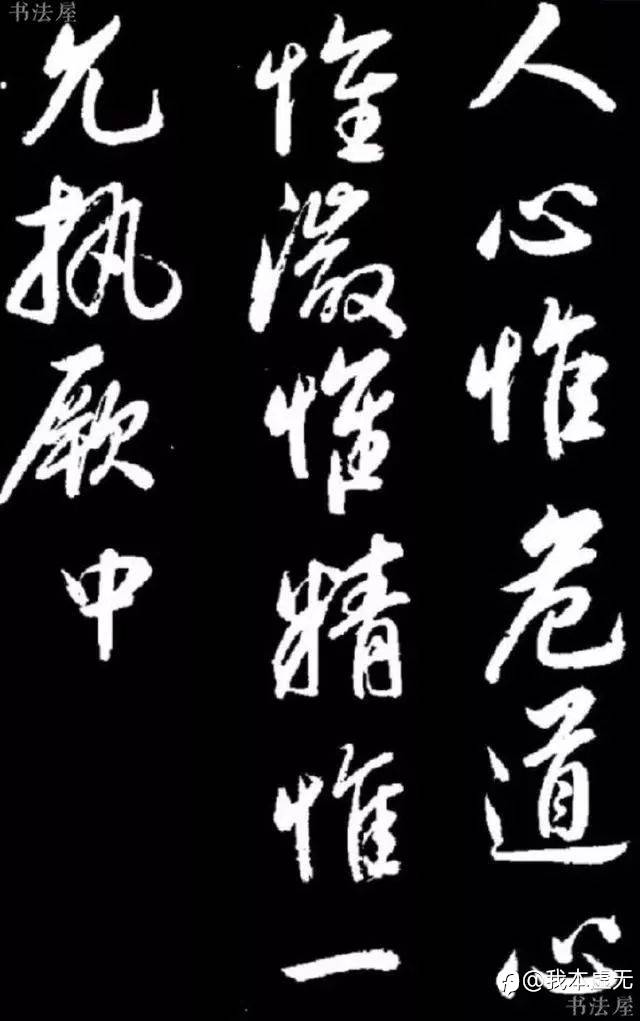 书法屋
人心惟危道心
惟微惟精惟一
允执厥中
@我本虚无
书法屋